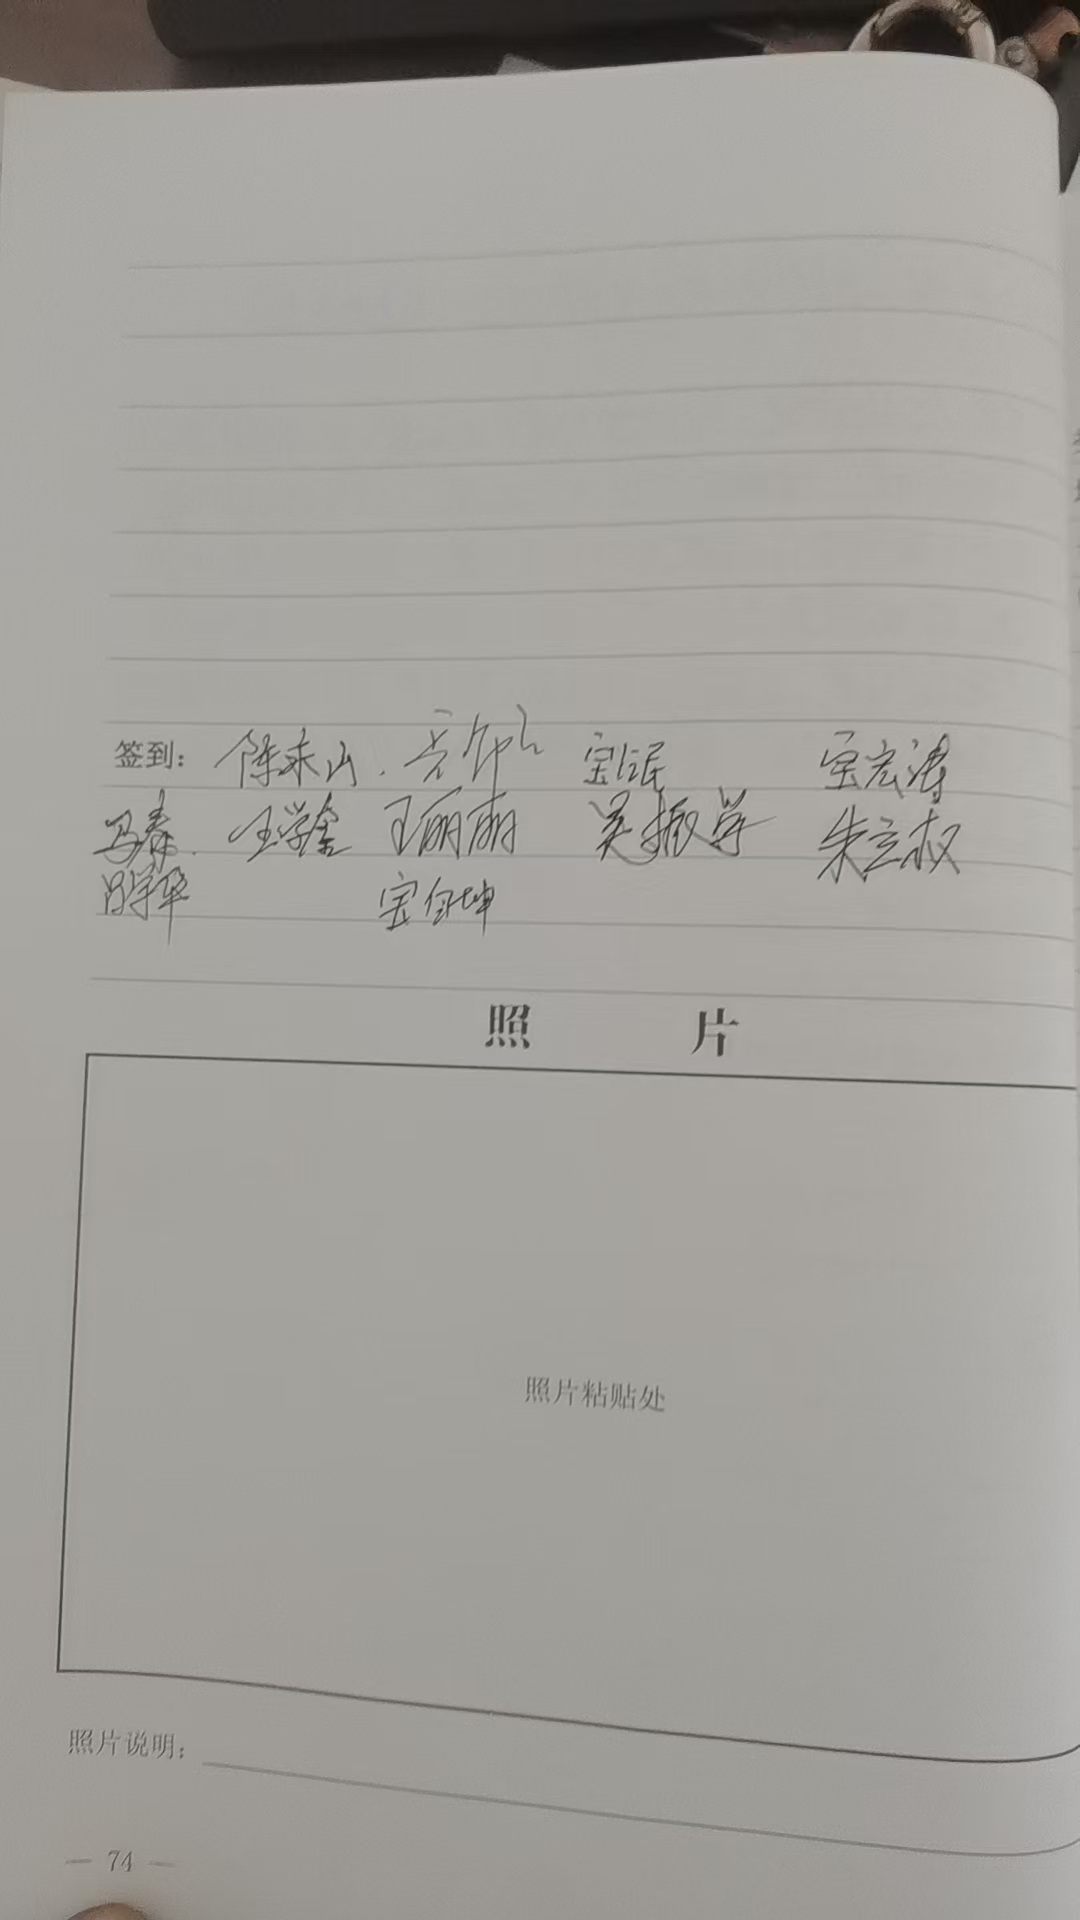 签到： 陈来山 宝宏涛
马春 王学 王丽丽 吴振学 朱立权
吕宇华 宝自坤
照 片
照片粘贴处
照片说明：
— 74 —